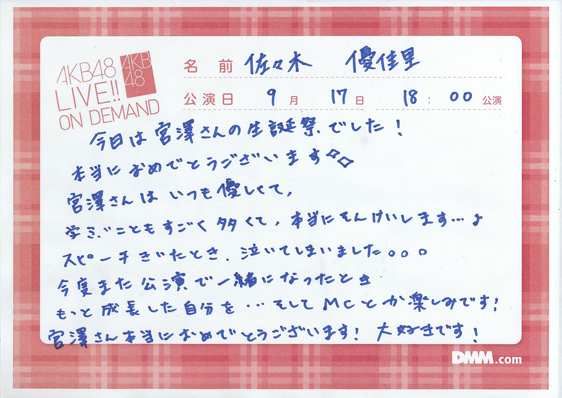 AKB48
LIVE!!
ON DEMAND
AKB
48
名前 佐々木 優佳里
公演日 9月 17日 18:00公演
今日は宮澤さんの生誕祭でした！
本当におめでとうございます◇◇
宮澤さんはいつも優しくて、
学ぶこともすごく多くて、本当にそんけいします…♪
スピーチきいたとき、泣いてしまいました。。。
今度また公演で一緒になったとき
もっと成長した自分を…そしてMCとか楽しみです！
宮澤さん本当におめでとうございます！大好きです！
DMM.com